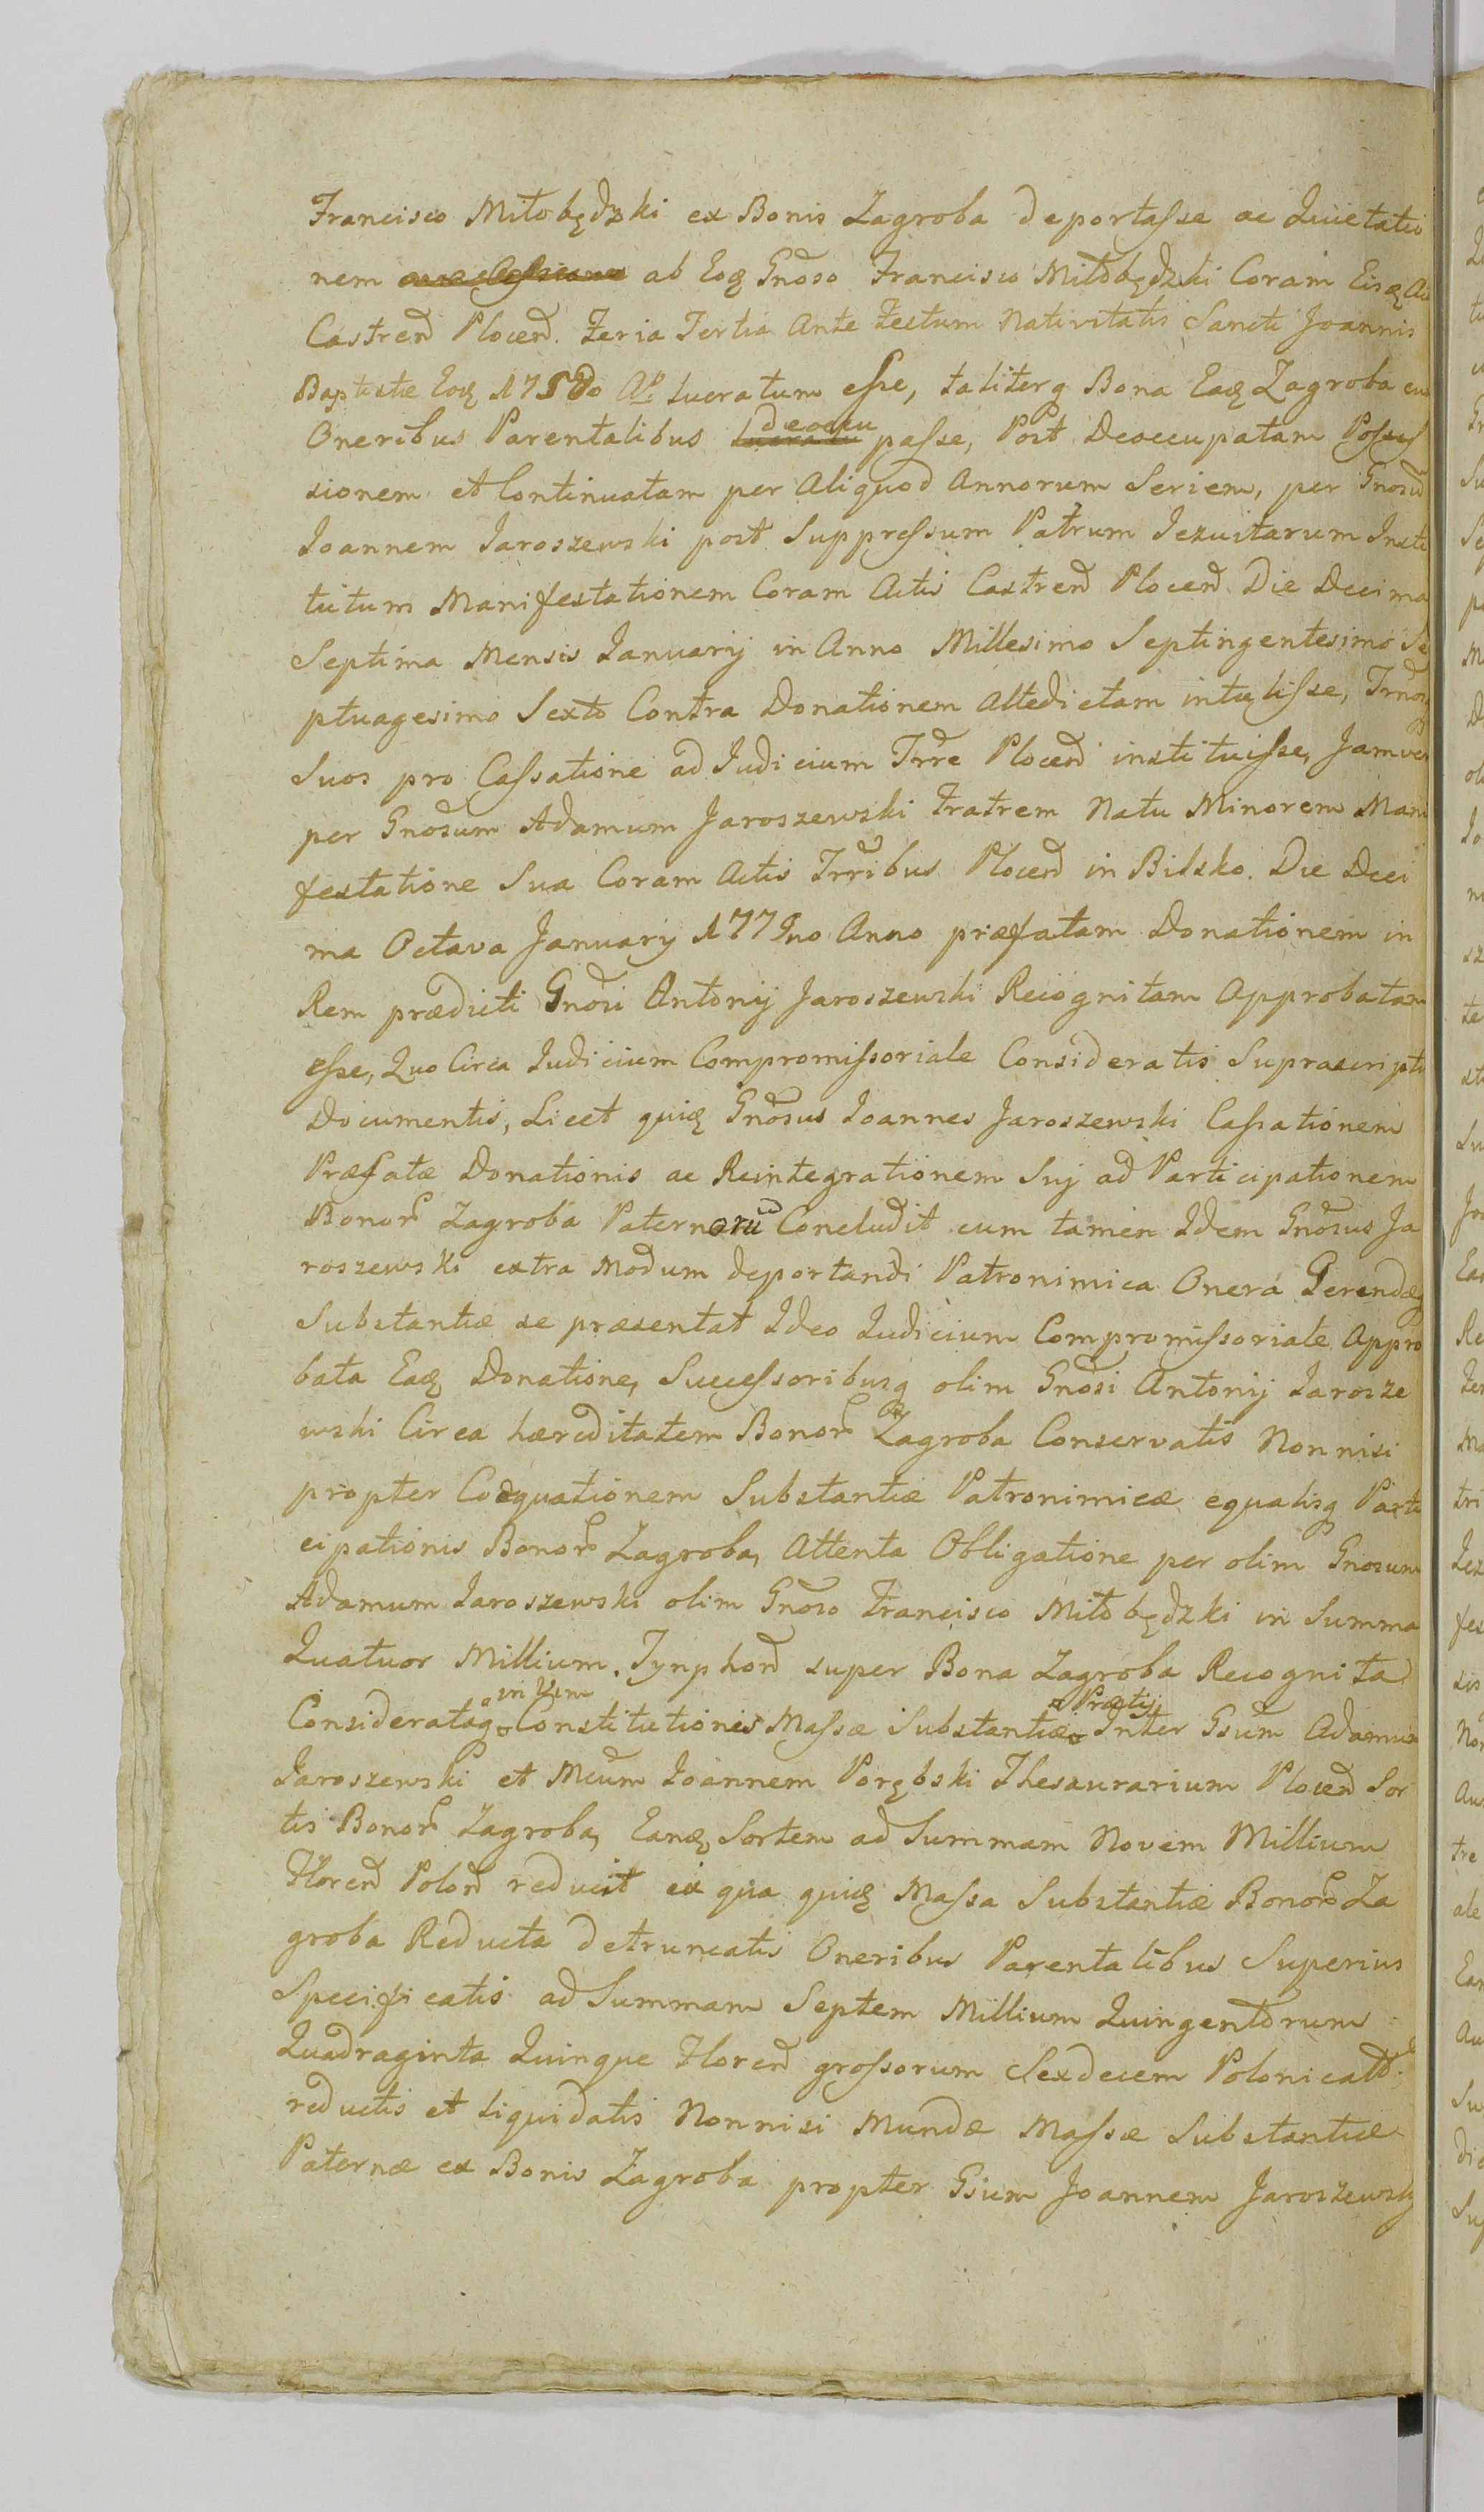 Francisco Miłobędzki ex Bonis Zagroba deportasse ac Quietatio
nem ab Eoq Gnoso Francisco Miłobędzki Coram Eisq
Castren Plocen. Feria Tertia Ante Festum Nativitatis Sancti Joannis
Baptistæ Eoq Ao lucratum esse, taliterq Bona Eaq Zagroba
Oneribus Parentalibus deoccu passe, Post Deoccupatam Posses
sionem et Continuatam per Aliquod Annorum Seriem, per Gnosu
Ioannem Iaroszewski post Suppressum Patrum Iezuitarum Insti
tutum Manifestationem Coram Actis Castren Plocen Die Decima
Septima Mensis Ianuarij in Anno Millesimo Septingentesimo Se
ptuagesimo Sexto Contra Donationem Altedictam intulisse,
Suos pro Cassatione ad Iudicium Trre Plocen instituisse, Jamve
per Gnosum Adamum Jaroszewski Fratrem Natu Minorem Mani
festatione Sua Coram Actis Trribus Plocen in Bilsko. Die Deci
ma Octava Januarij Anno præfatam Donationem in
Rem prædicti Gnosi Antonij Jaroszewski Recognitam Approbatam
esse, Quo Circa Iudicium Compromissoriale Consideratis Suprascriptis
Documentis, Licet quiq Gnosus Ioannes Jaroszewski Cassationem
Præfatæ Donationis ac Reintegrationem Suj ad Participationem
Bonor Zagroba Paternoru Concludit cum tamen Idem Gnosus Ja
roszewski extra Modum deportandi Patronimica Onera Gerendæq
Substantiæ se præsentat Ideo Iudicium Compromissoriale Appro
bata Eaq Donatione, Successoribusq olim Gnosi Antonij Iarosze
wski Circa hæreditatem Bonor Zagroba Conservatis Nonnisi
propter Coæquationem Substantiæ Patronimicæ equalisq Parti
cipationis Bonor Zagroba, Attenta Obligatione per olim Gnosum
Adamum Iaroszewski olim Gnoso Francisco Miłobędzki in Summa
Quatuor Millium. Tynphon super Bona Zagroba Recognita
Considerataq in Vim Constitutionis Massæ Substantiæ Inter Gsum Adamum
Iaroszewski et Mcum Ioannem Porębski Thesaurarium Plocen Sor
tis Bonor Zagroba, Eanq Sortem ad Summam Novem Millium
Floren Polon reducit ex qua quiq Massa Substantiæ Bonor Za
groba Reducta detruncatis Oneribus Parentalibus Superius
Specificatis ad Summam Septem Millium Quingentorum
Quadraginta Quinque Floren grossorum Sexdecem Polonicali
reductis et liquidatis Nonnisi Mundæ Massæ Substantiæ
Paternæ ex Bonis Zagroba propter Gsum Joannem Jaroszewski